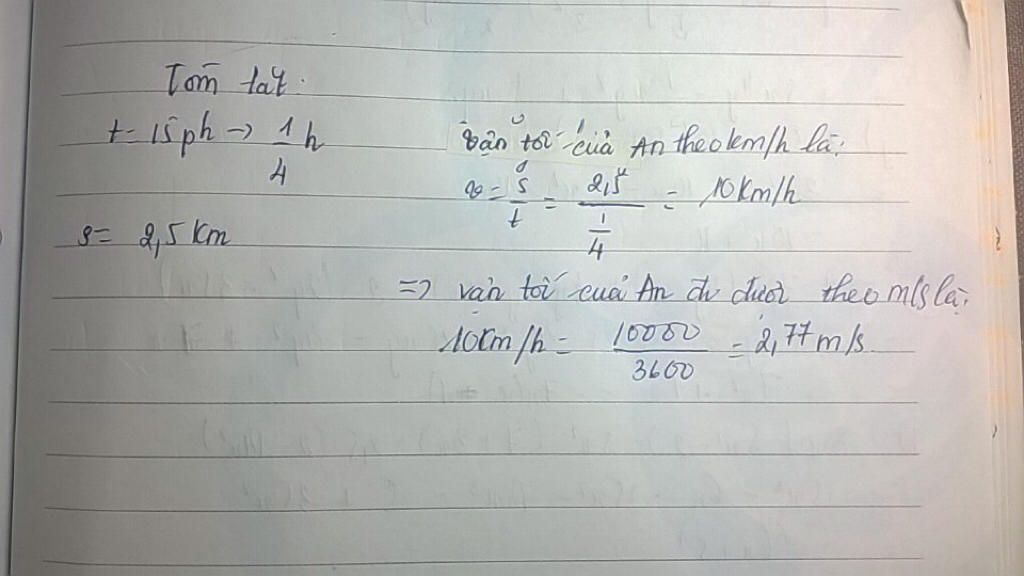 Tóm tắt:
t = 15ph → 1/4 h
s = 2,5 Km
Vận tốc của An theo km/h là:
v = s/t = 2,5/(1/4) = 10 Km/h
=> vận tốc của An đi được theo m/s là:
10Km/h = 10000/3600 = 2,77 m/s